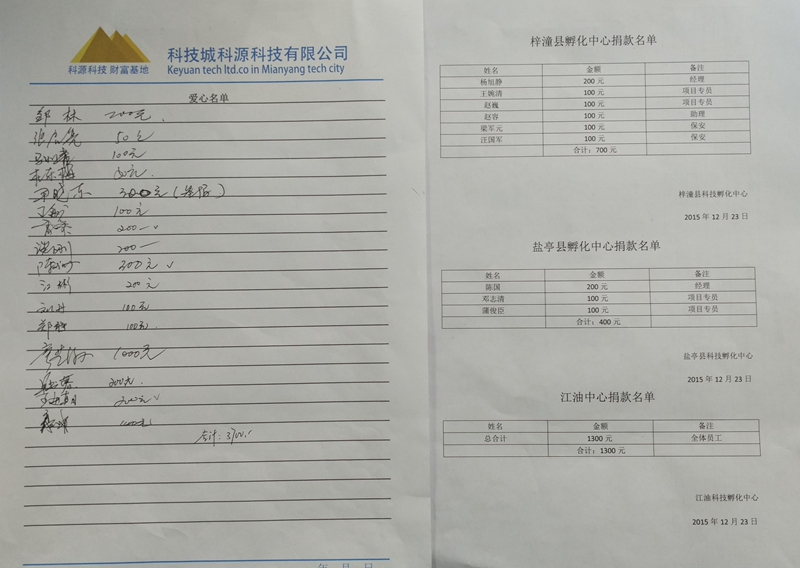 科源科技 财富基地
科技城科源科技有限公司
Keyuan tech ltd.co in Mianyang tech city
爱心名单
邹林 200元
50元
100元
300元
100元
200一
200一
300元
江彬 200元
100元
郑 100元
1000元
200元
200元
100元
合计:3700.
年 月 日
梓潼县孵化中心捐款名单
姓名 金额 备注
杨旭静 200 元 经理
王婉清 100 元 项目专员
赵巍 100 元 项目专员
赵容 100 元 助理
梁军元 100 元 保安
汪国军 100 元 保安
合计：700 元
梓潼县科技孵化中心
2015 年 12 月 23 日
盐亭县孵化中心捐款名单
姓名 金额 备注
陈国 200 元 经理
邓志清 100 元 项目专员
蒲俊臣 100 元 项目专员
合计：400 元
盐亭县科技孵化中心
2015 年 12 月 23 日
江油中心捐款名单
姓名 金额 备注
总合计 1300 元 全体员工
合计：1300 元
江油科技孵化中心
2015 年 12 月 23 日